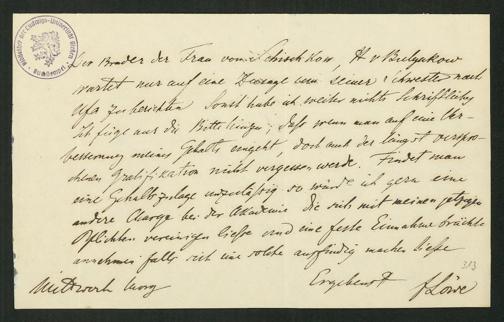 Der Bruder der Frau von Schischkow, H v Bulgakow
wartet nur auf eine Zusage von seiner Schwester nach
Ufa zu berichten Sonst habe ich weiter nichts Schriftliches
ich füge nur die Bitte hinzu, dass wenn man auf eine Ver-
besserung meines Gehalts eingeht, doch auch der längst verspro-
chenen Gratifikation nicht vergessen werde. Findet man
eine Gehaltszulage unzulässig so würde ich gern eine
andere Charge bei der Akademie die sich mit meinen jetzigen
Pflichten vereinigen liesse und eine feste Einnahme brächte
annehmen falls sich eine solche ausfindig machen liesse
Mittwoch Morg
Ergebenst
F Löwe
313